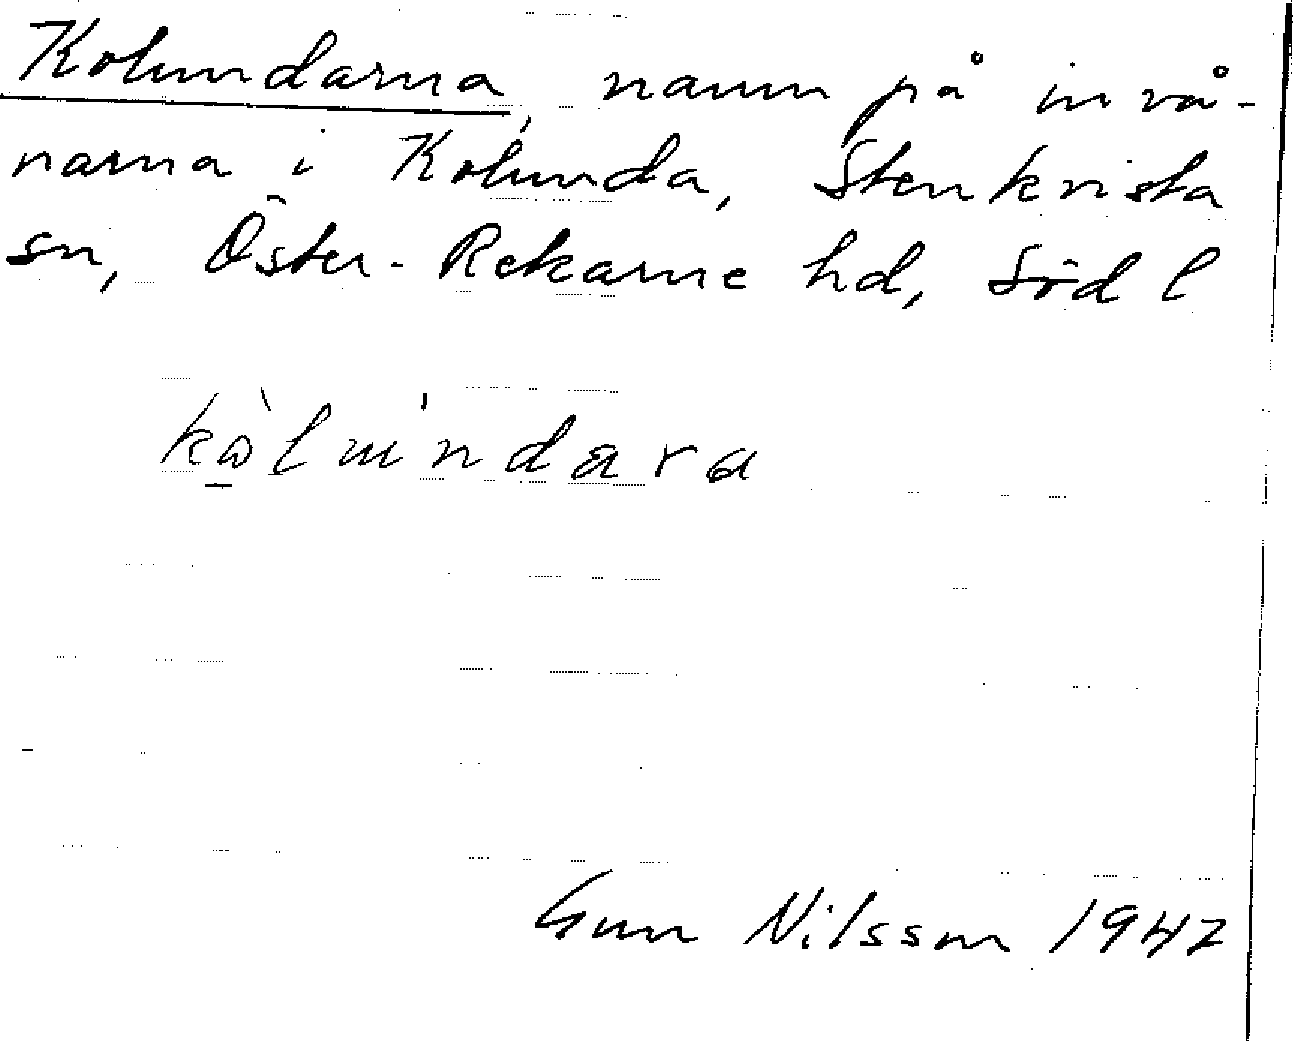 Kolundarna, namn på invå-
narna i Kolunda, Stenkvista
sn, Öster-Rekarne hd, Södl
Gun Nilsson 1942